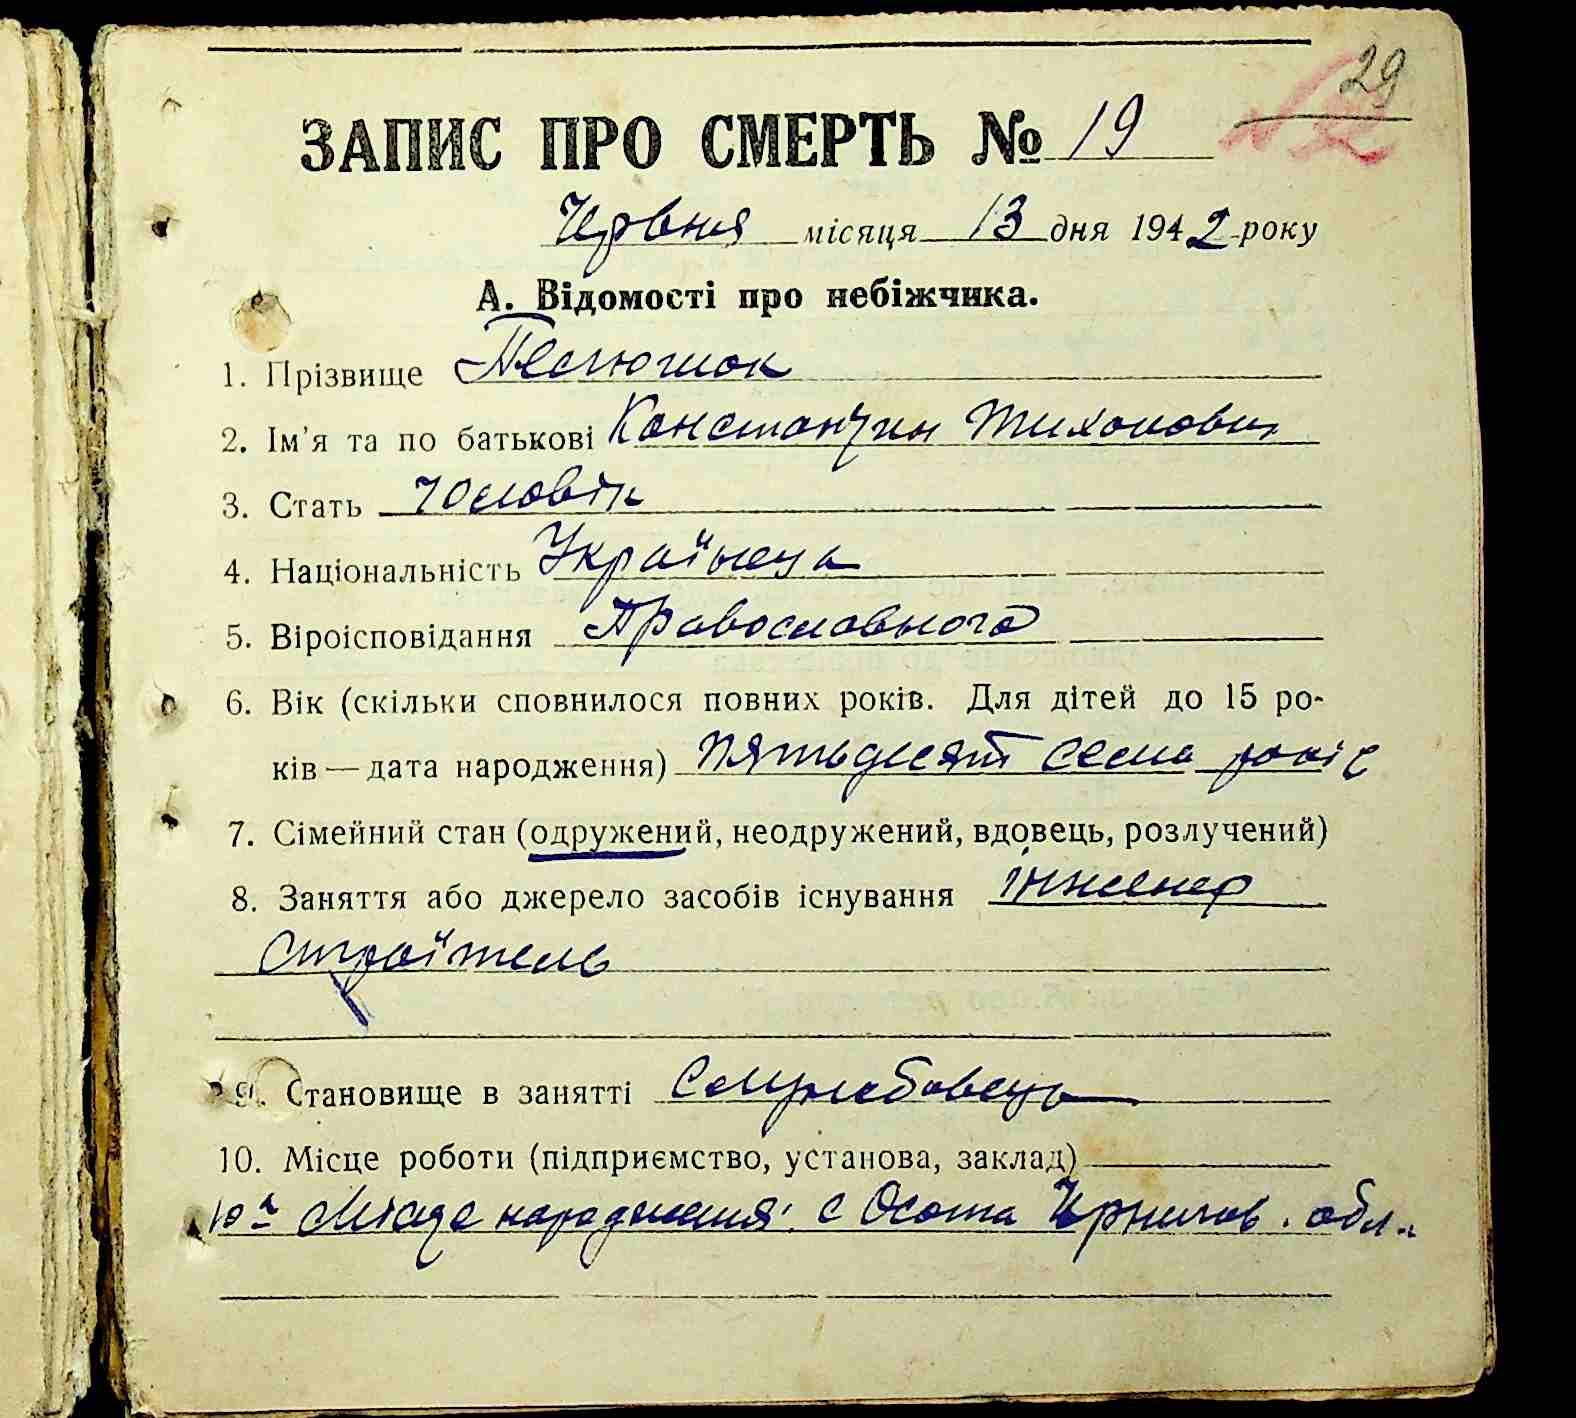 29
ЗАПИС ПРО СМЕРТЬ № 19
Червня місяця 13 дня 1942 року
А. Відомості про небіжчика.
1. Прізвище
2. Ім'я та по батькові Константин Тихонович
3. Стать Чоловік
4. Національність Українець
5. Віроісповідання Православного
6. Вік (скільки сповнилося повних років. Для дітей до 15 ро-
ків — дата народження) пятьдесят семь років
7. Сімейний стан (одружений, неодружений, вдовець, розлучений)
8. Заняття або джерело засобів існування інженер
строїтель
9. Становище в занятті Служебовець
10. Місце роботи (підприємство, установа, заклад)
10а Місце народження: с Осота обл.